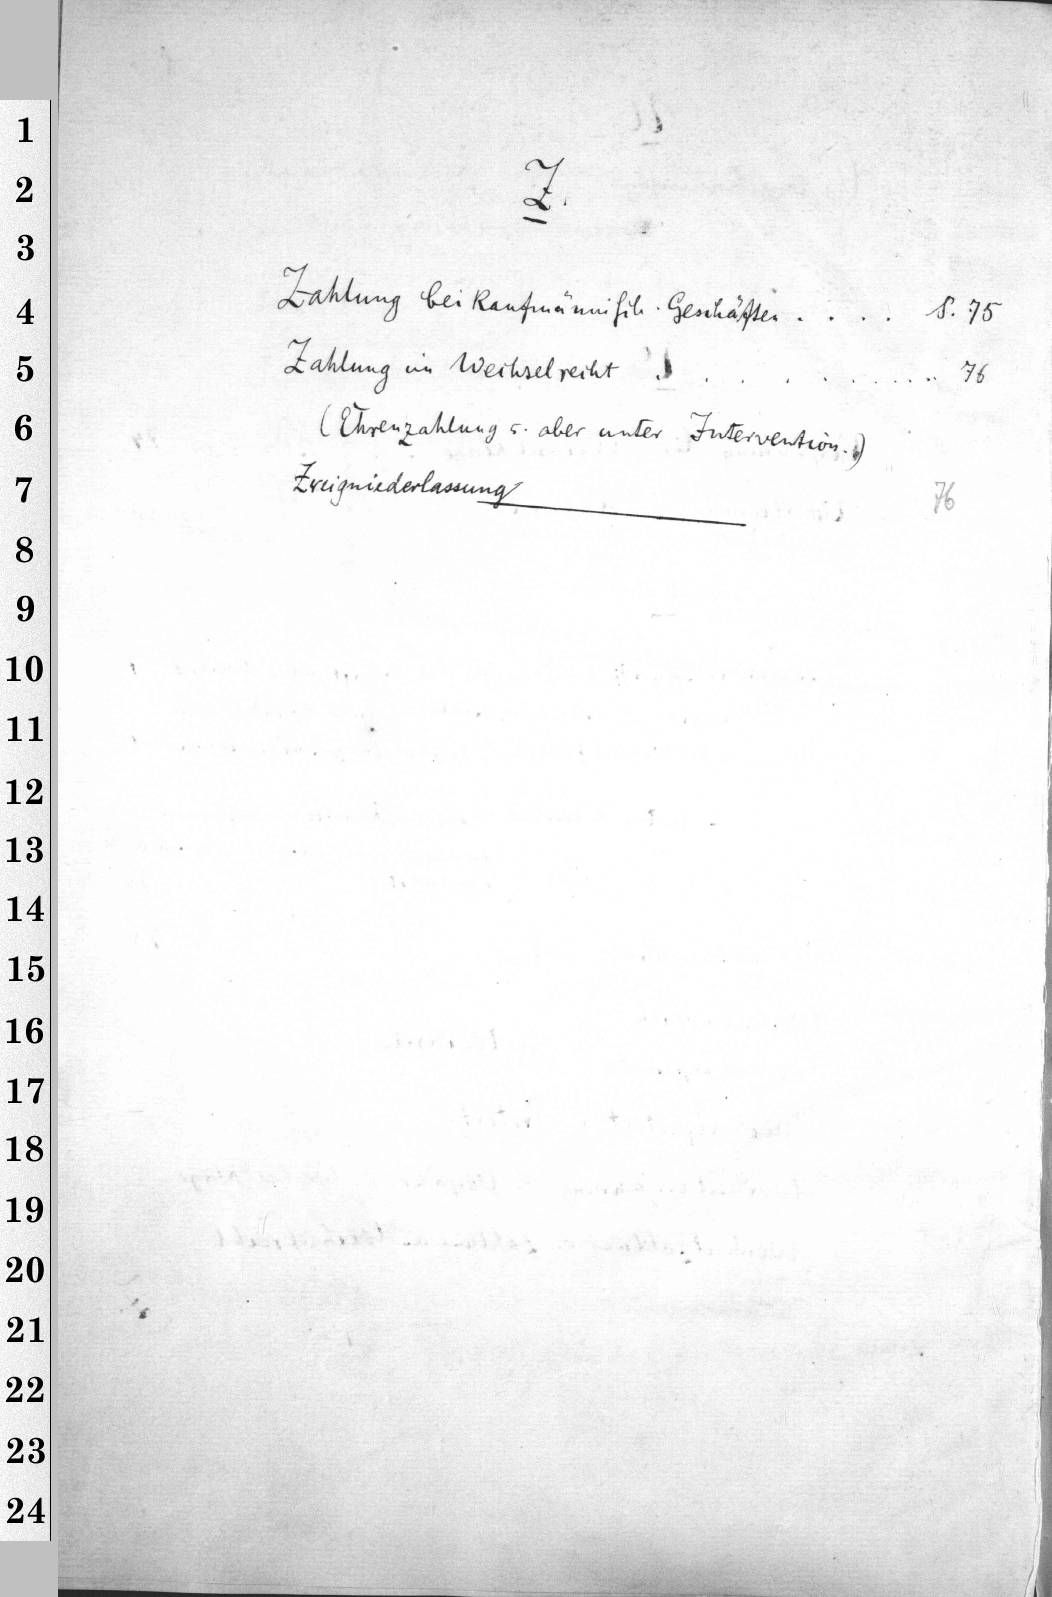 1
2
Z.
3
4
Zahlung bei Kaufmännisch. Geschäften . . . . S. 75
5
Zahlung im Wechselrecht . . . . . . . . . . . 76
6
(Ehrenzahlung s. aber unter Intervention.)
7
Zweigniederlassung 76
8
9
10
11
12
13
14
15
16
17
18
19
20
21
22
23
24